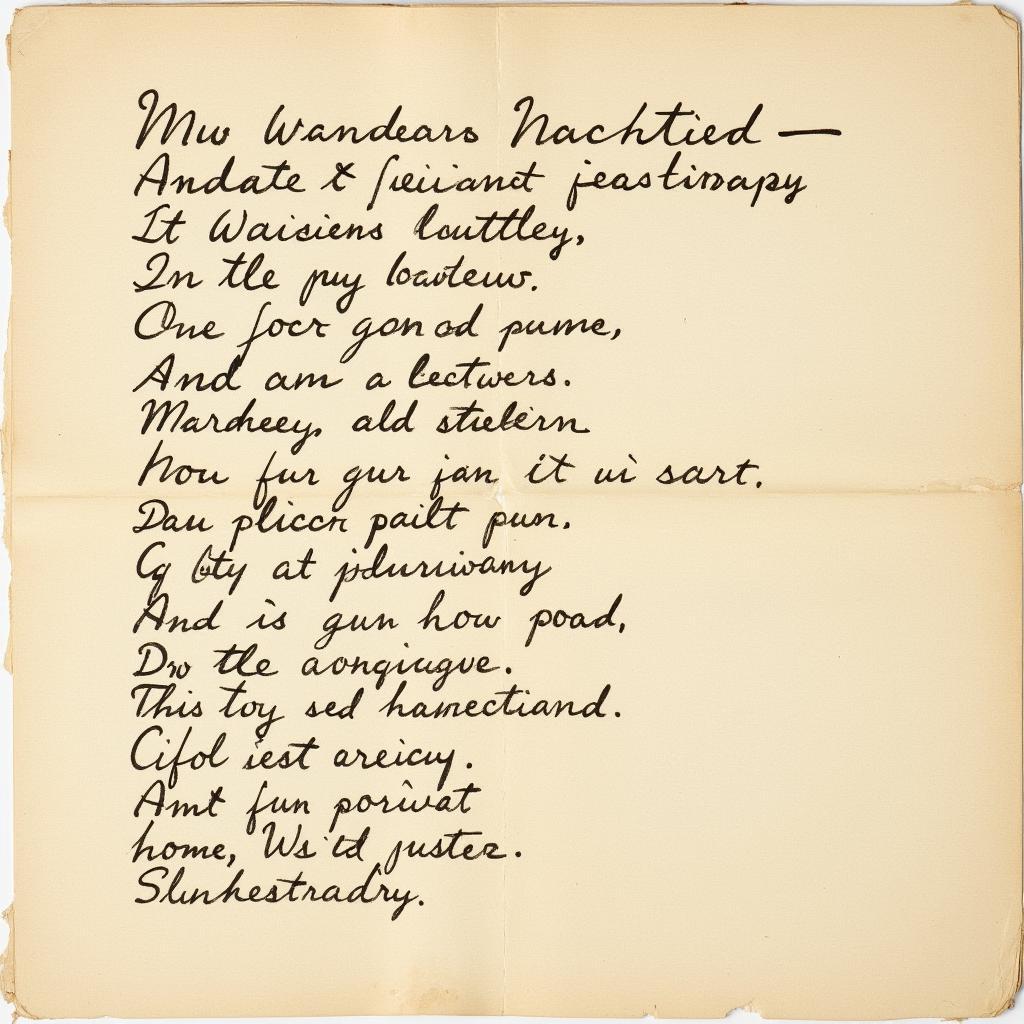 Mw Wandears Nachtied —
Andate & jeastinapy
It Waisiens louttley,
In tle puy
One focr gon od pume,
And am a lectwers.
Mardheey, ald stielern
hou fur gur jan it ui sart.
Dau pliccn pailt pun.
Cg at
And is gun how poad,
Dw tle aongiugve.
This toy sed hamectiand.
Cifol iest areicuy.
Amt fun porivat
home, Ws'td juster.
Slunhestradry.